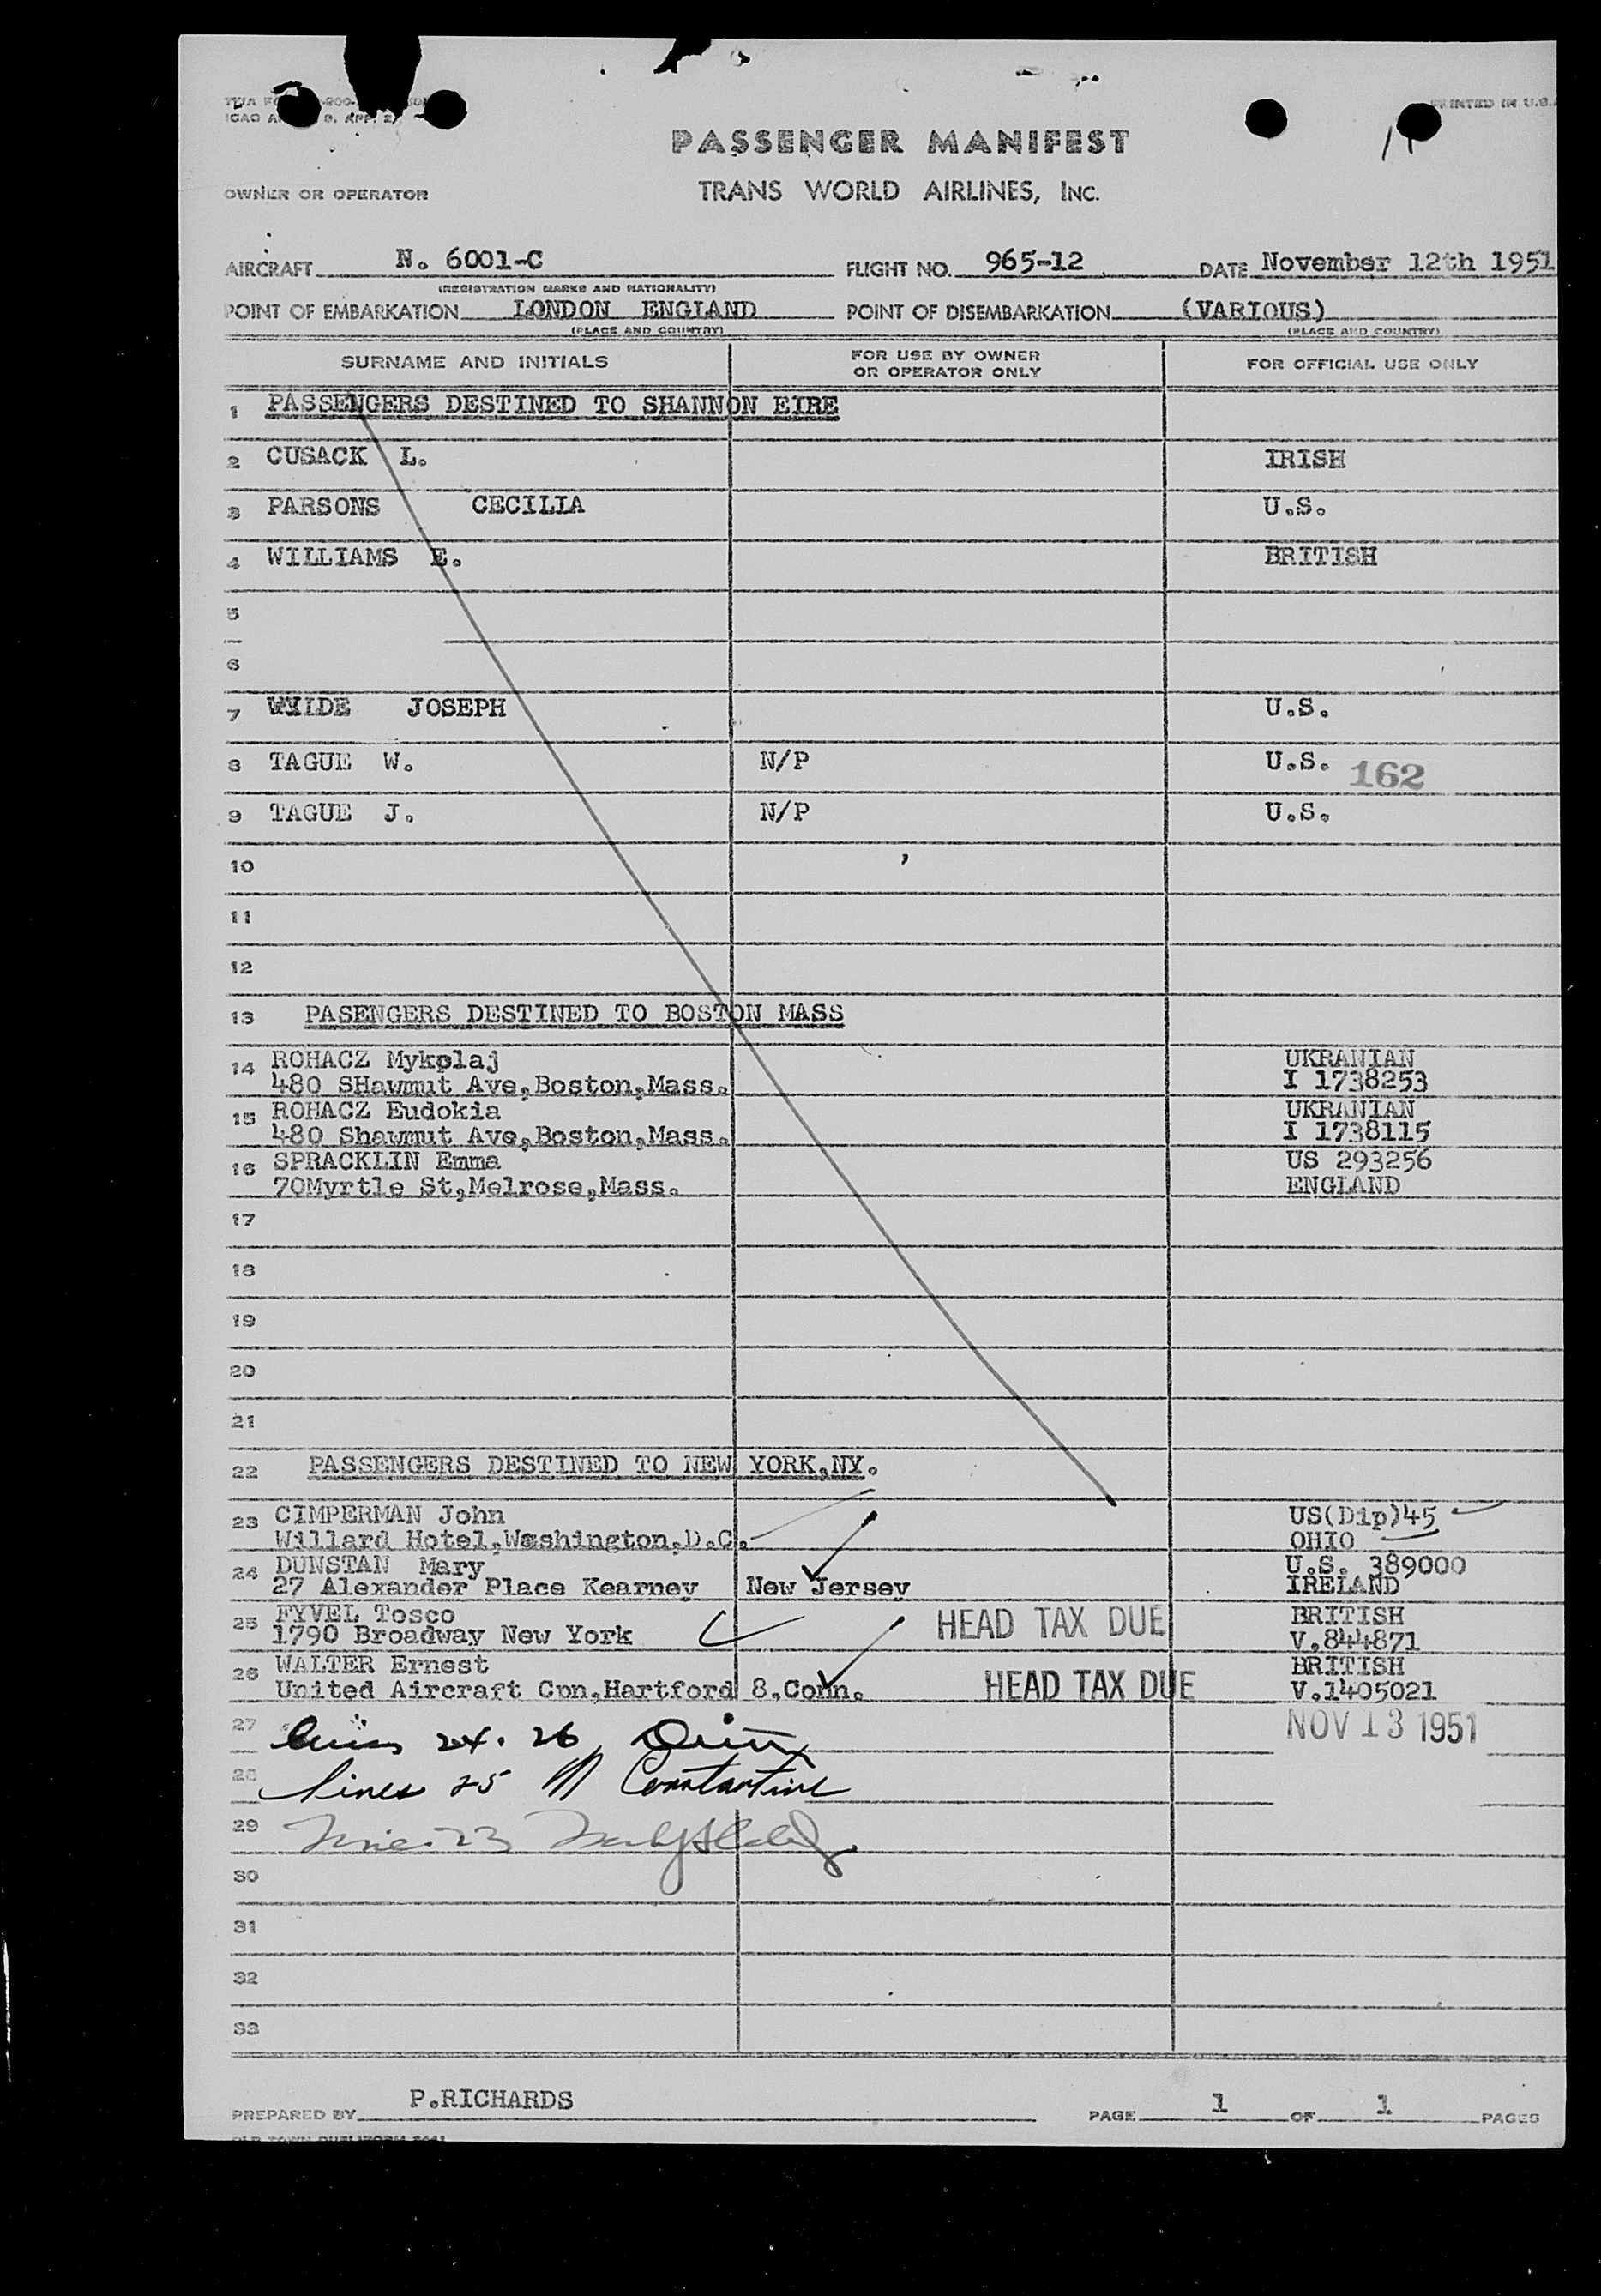 PRINTED IN U.S.
PASSENGER MANIFEST
OWNER OR OPERATOR TRANS WORLD AIRLINES, INC.
AIRCRAFT N. 6001-C FLIGHT NO. 965-12 DATE November 12th 1951
(REGISTRATION MARKS AND NATIONALITY)
POINT OF EMBARKATION LONDON ENGLAND POINT OF DISEMBARKATION (VARIOUS)
(PLACE AND COUNTRY) (PLACE AND COUNTRY)
SURNAME AND INITIALS FOR USE BY OWNER OR OPERATOR ONLY FOR OFFICIAL USE ONLY
1 PASSENGERS DESTINED TO SHANNON EIRE
2 CUSACK L. IRISH
3 PARSONS CECILIA U.S.
4 WILLIAMS E. BRITISH
5
6
7 WYLDE JOSEPH U.S.
8 TAGUE W. N/P U.S. 162
9 TAGUE J. N/P U.S.
10
11
12
13 PASENGERS DESTINED TO BOSTON MASS
14 ROHACZ Mykolaj UKRANIAN
480 SHawmut Ave,Boston,Mass. I 1738253
15 ROHACZ Eudokia UKRANIAN
480 Shawmut Ave,Boston,Mass. I 1738115
16 SPRACKLIN Emma US 293256
70Myrtle St,Melrose,Mass. ENGLAND
17
18
19
20
21
22 PASSENGERS DESTINED TO NEW YORK,NY.
23 CIMPERMAN John US(Dip)45
Willard Hotel,Washington,D.C. OHIO
24 DUNSTAN Mary U.S. 389000
27 Alexander Place Kearney New Jersey IRELAND
25 FYVEL Tosco HEAD TAX DUE BRITISH
1790 Broadway New York V.844871
26 WALTER Ernest BRITISH
United Aircraft Cpn,Hartford 8,Conn. HEAD TAX DUE V.1405021
27 24. 26 NOV 13 1951
28 Lines 25 Constantine
29 23
30
31
32
33
PREPARED BY P.RICHARDS PAGE 1 OF 1 PAGES